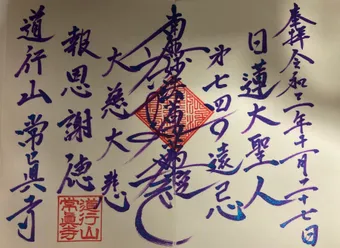 奉拝令和二年十一月二十七日
日蓮大聖人
第七四〇遠忌
南無妙法蓮華経
大慈大悲
報恩謝徳
道行山常眞寺
道行山
常眞寺